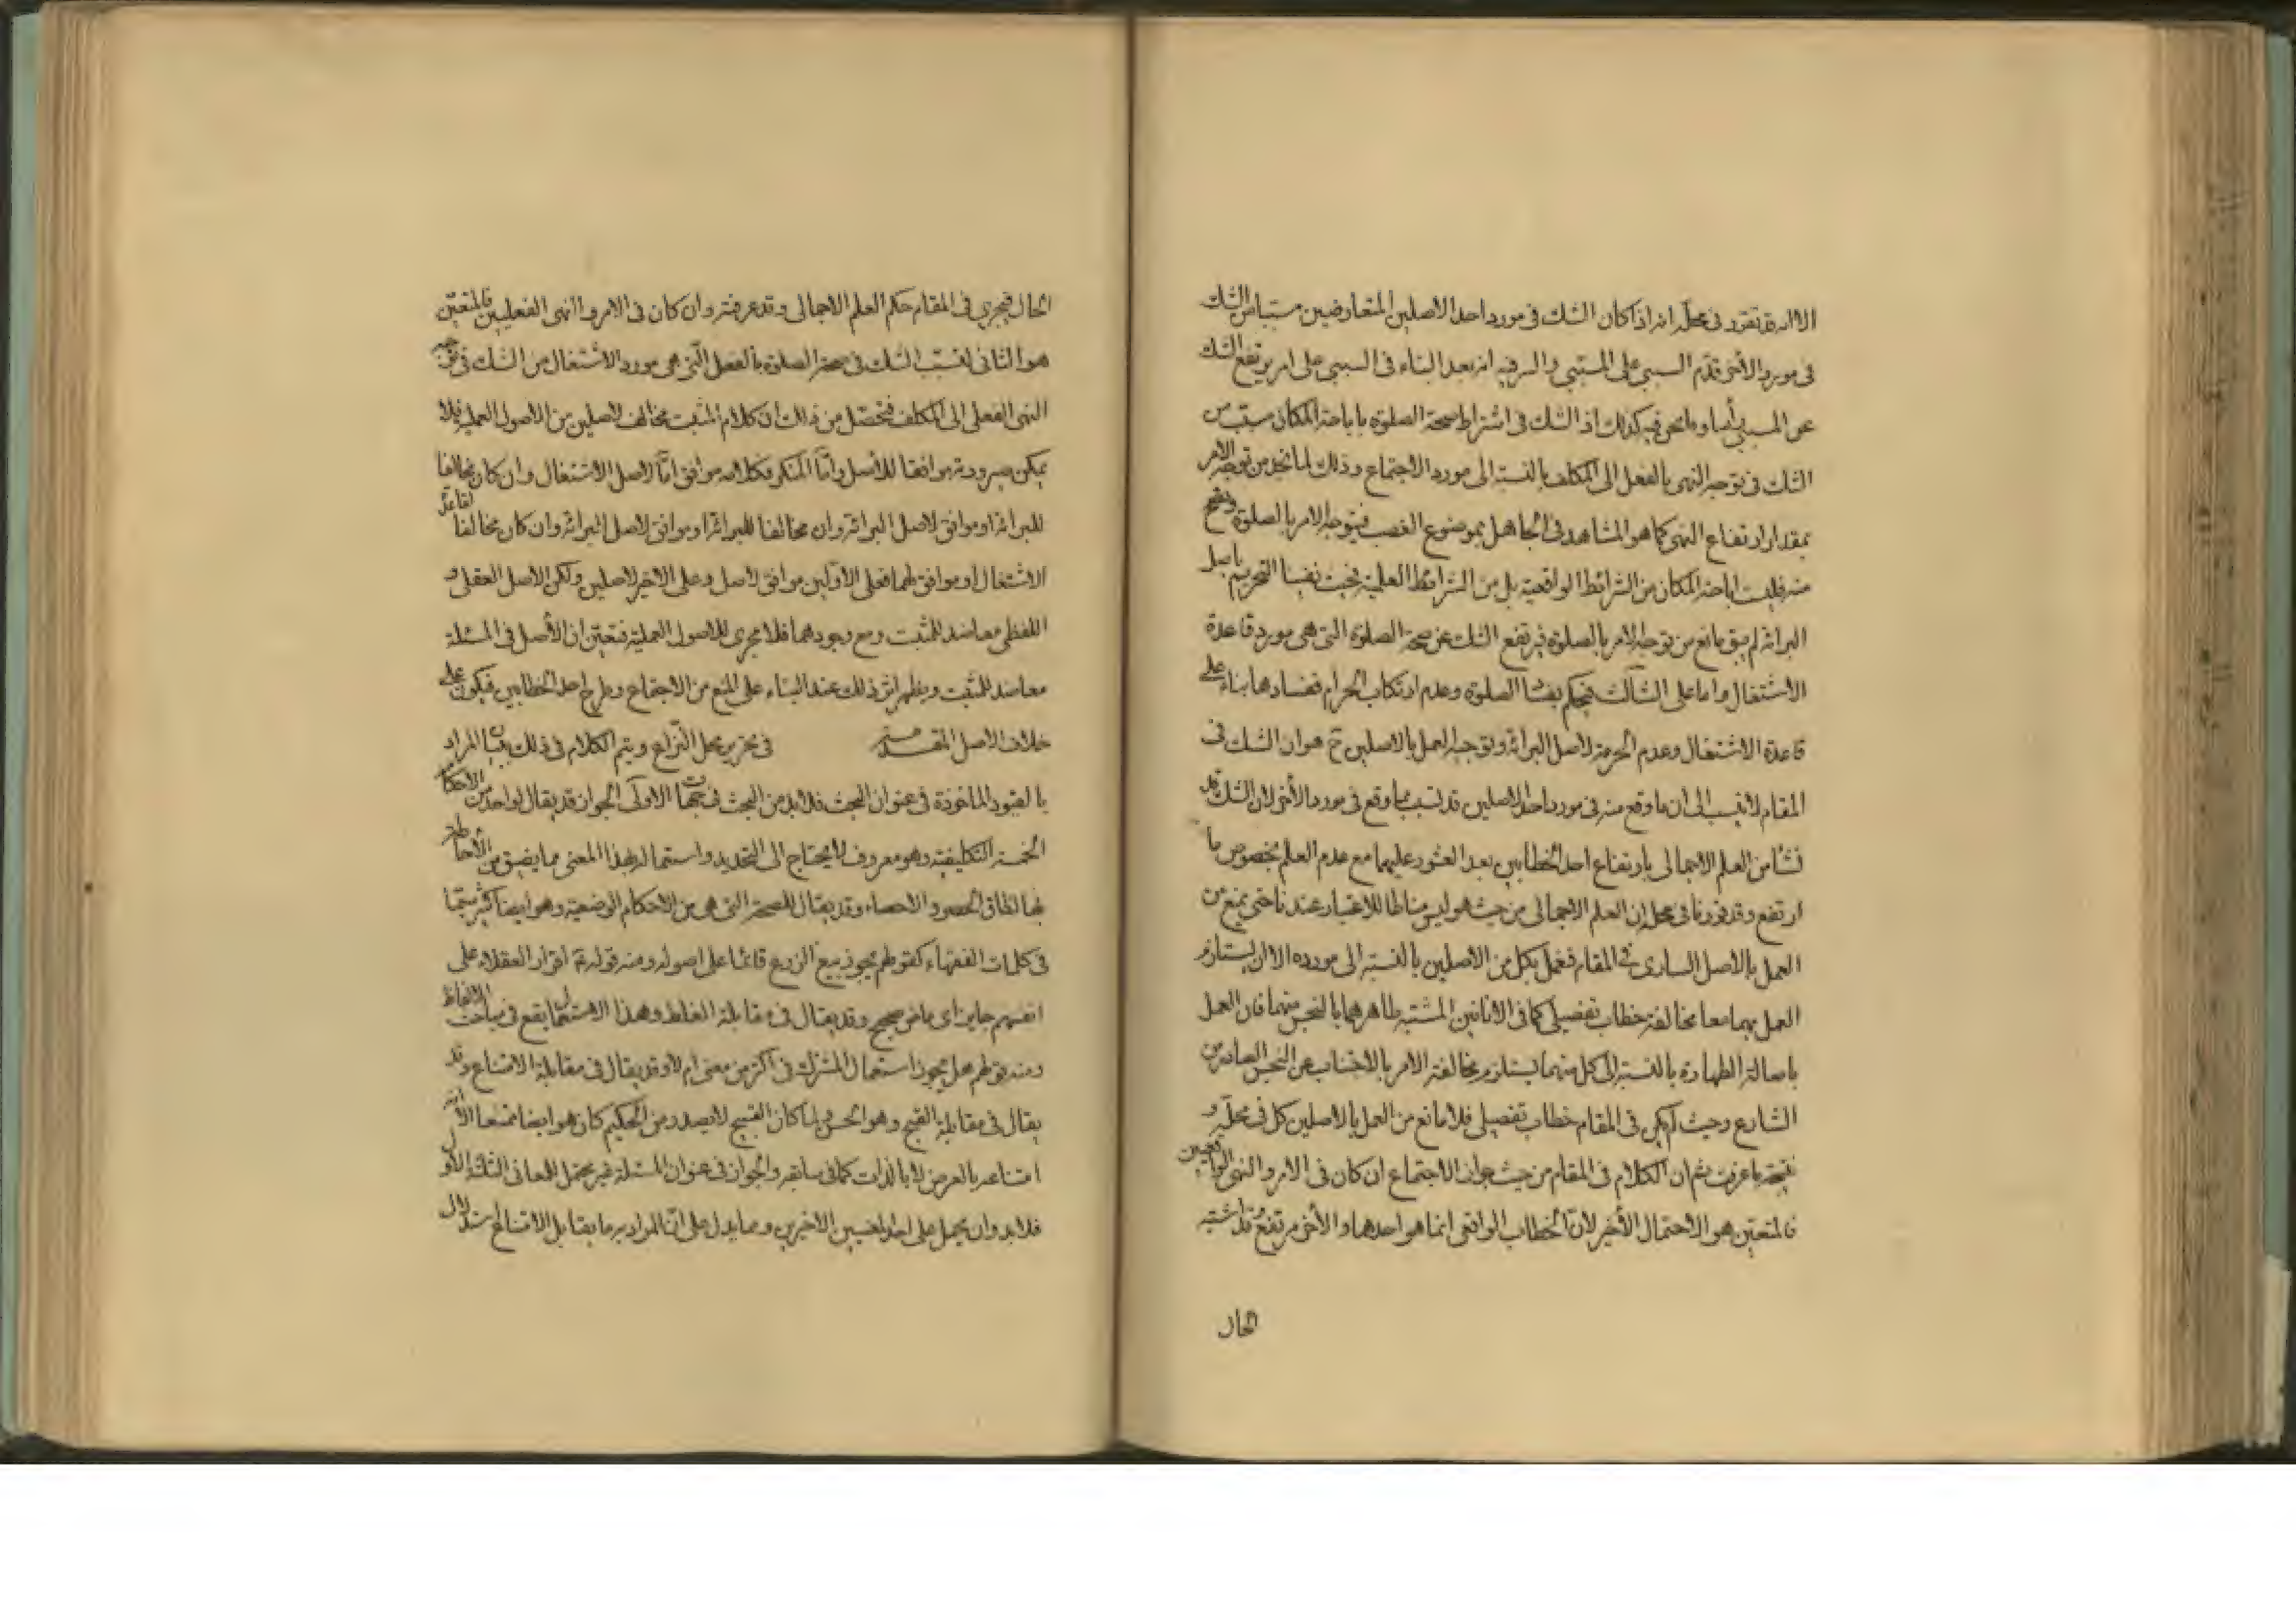 الا انه قد تقرر فی محلّه انه اذا کان الشك فی مورد احد الاصلین المتعارضین مسببا من الشك
فی مورد الأخر قدّم السببی علی المسببی والسر فیه انه بعد البناء فی السببی علی امر یرتفع الشك
عن المسببی رأسا وما نحن فیه کذلك اذ الشك فی اشتراط صحة الصلوة باباحة المکان مسبب من
الشك فی توجه النهی بالفعل الی المکلف بالنسبة الی مورد الاجتماع وذلك لما نجد من توجه الامر
بمقدار ارتفاع النهی کما هو المشاهد فی الجاهل بموضوع الغصب فیتوجه الامر بالصلوة وتصح
منه فلیست اباحة المکان من الشرائط الواقعیة بل من الشرائط العلمیة فحیث نفینا التحریم باصل
البرائة لم یبق مانع من توجه الامر بالصلوة فیرتفع الشك عن صحة الصلوة التی هی مورد قاعدة
الاشتغال واما علی الثالث فیحکم بفساد الصلوة وعدم ارتکاب الحرام ففسادها بناء علی
قاعدة الاشتغال وعدم الحرمة لاصل البرائة وتوجیه العمل بالاصلین ح هو ان الشك فی
المقام لا ینسب الی ان ما وقع منه فی مورد احد الاصلین قد تسبب مما وقع فی مورد الأخر لان الشك قد
نشأ من العلم الاجمالی بارتفاع احد الخطابین بعد العثور علیهما مع عدم العلم بخصوص ما
ارتفع وقد قررنا فی محله ان العلم الاجمالی من حیث هو لیس مناطا للاعتبار عندنا حتی یمنع من
العمل بالاصل الساری فی المقام فنعمل بکل من الاصلین بالنسبة الی مورده الا ان یستلزم
العمل بهما معا مخالفة خطاب تفصیلی کما فی الانائین المشتبه طاهرهما بالنجس منهما فان العمل
باصالة الطهارة بالنسبة الی کل منهما یستلزم مخالفة الامر بالاجتناب عن النجس الصادر من
الشارع وحیث لم یکن فی المقام خطاب تفصیلی فلا مانع من العمل بالاصلین کل فی محلّه و
نتیجته ما عرفت ثم ان الکلام فی المقام من حیث جواز الاجتماع ان کان فی الامر والنهی الواقعیین
فالمتعین هو الاحتمال الأخیر لانّ الخطاب الواقعی انما هو احدهما والأخر مرتفع وقد اشتبه
الحال
الحال فیجری فی المقام حکم العلم الاجمالی وقد عرفته وان کان فی الامر والنهی الفعلیین فالمتعیّن
هو الثانی لتسبّب الشك فی صحة الصلوة بالفعل الّتی هی مورد الاشتغال من الشك فی توجه
النهی الفعلی الی المکلف فتحصّل من ذلك ان کلام المثبت مخالف لاصلین من الاصول العملیة فلا
یمکن صیرورته موافقا للاصل وامّا المنکر فکلامه موافق امّا لاصل الاشتغال وان کان مخالفا
للبرائة او موافق لاصل البرائة وان مخالفا للبرائة او موافق لاصل البرائة وان کان مخالفا لقاعدة
الاشتغال او موافق لهما فعلی الاوّلین موافق لاصل وعلی الاخیر لاصلین ولکن الاصل العقلی و
اللفظی معاضد للمثبت ومع وجودهما فلا مجری للاصول العملیة فتعیّن ان الأصل فی المسئلة
معاضد للمثبت ویظهر اثر ذلك عند البناء علی المنع من الاجتماع وطرح احد الخطابین فیکون علی
خلاف الاصل المقدمة فی تحریر محل النزاع ویتم الکلام فی ذلك ببیان المراد
بالقیود الماخوذة فی عنوان البحث فلا بد من البحث فی جهات الاولی الجواز قد یقال لواحد من الاحکام
الخمسة التکلیفیة وهو معروف لا یحتاج الی التحدید واستعماله بهذا المعنی مما یضیق من الأحاطة
بها نطاق الحصر والاحصاء وقد یقال للصحة التی هی من الاحکام الوضعیة وهو ایضا کثیر سیّما
فی کلمات الفقهاء کقولهم یجوز بیع الزرع قائما علی اصوله ومنه قوله ع اقرار العقلاء علی
انفسهم جایز ای ماض صحیح وقد یقال فی مقابلة الغلط وهذا الاستعمال یقع فی مباحث الالفاظ
ومنه قولهم هل یجوز استعمال المشترك فی اکثر من معنی ام لا وقد یقال فی مقابلة الامتناع وقد
یقال فی مقابلة القبیح وهو الحسن ولما کان القبیح لا یصدر من الحکیم کان هو ایضا ممتنعا الا انه
امتناعه بالعرض لا بالذات کما فی سابقه والجواز فی عنوان المسئلة غیر محتمل للمعانی الثلثة الاول
فلا بد وان یحمل علی احد المعنیین الاخیرین ومما یدل علی انّ المراد به ما یقابل الامتناع استدلال